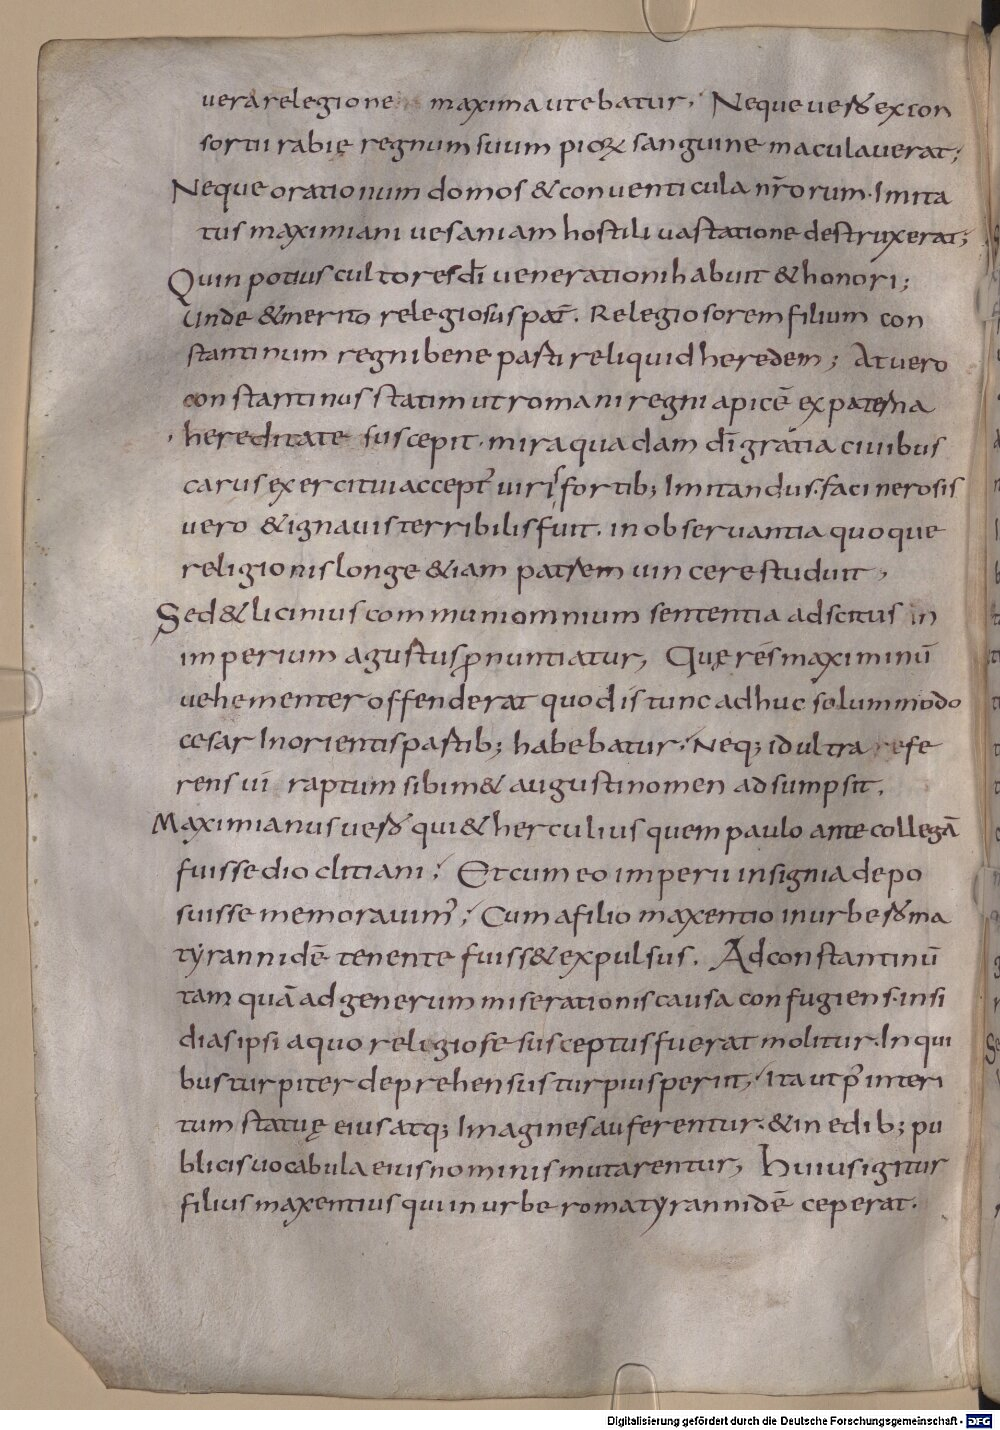 vera relegione maxima utebatur; Neque vero ex con
sortii rabie regnum suum piorum sanguine maculaverat;
Neque orationum domos & conventicula nr̄orum. Imita
tus maximiani vesaniam hostili vastatione destruxerat;
Quin potius cultores dī venerationi habuit & honori;
Unde & merito relegiosus pat̄. Relegiosorem filium con
stantinum regni bene parti reliquid heredem; At vero
constantinus statim ut romani regni apicē ex paterna
hereditate suscepit. mira quadam dī gratia civibus
carus exercitui accept᾽ viris fortib; Imitandus. facinerosis
vero & ignavis terribilis fuit. in observantia quoque
religionis longe &iam patrem vincere studuit,
Sed & licinius communi omnium sententia adscitus in
imperium agustus ꝓnuntiatur, Quę res maximinū
vehementer offenderat quod is tunc adhuc solummodo
cesar In orientis partib; habebatur. Neq; id ultra refe
rens vi raptum sibim& augusti nomen adsumpsit.
Maximianus vero qui & herculius quem paulo ante collegā
fuisse dioclitiani; Et cum eo imperii insignia depo
suisse memoravim᾽; Cum a filio maxentio in urbe roma
tyrannidē tenente fuiss& expulsus. Ad constantinū
tamquā ad generum miserationis causa confugiens. insi
dias ipsi a quo religiose susceptus fuerat molitur. In qui
bus turpiter deprehensus turpius periit, ita ut p᾽ interi
tum statuę eius atq; Imagines auferentur. & in edib; pu
blicis vocabula eius nominis mutarentur, Huius igitur
filius maxentius qui in urbe roma tyrannidē ceperat.
Digitalisierung gefördert durch die Deutsche Forschungsgemeinschaft - DFG